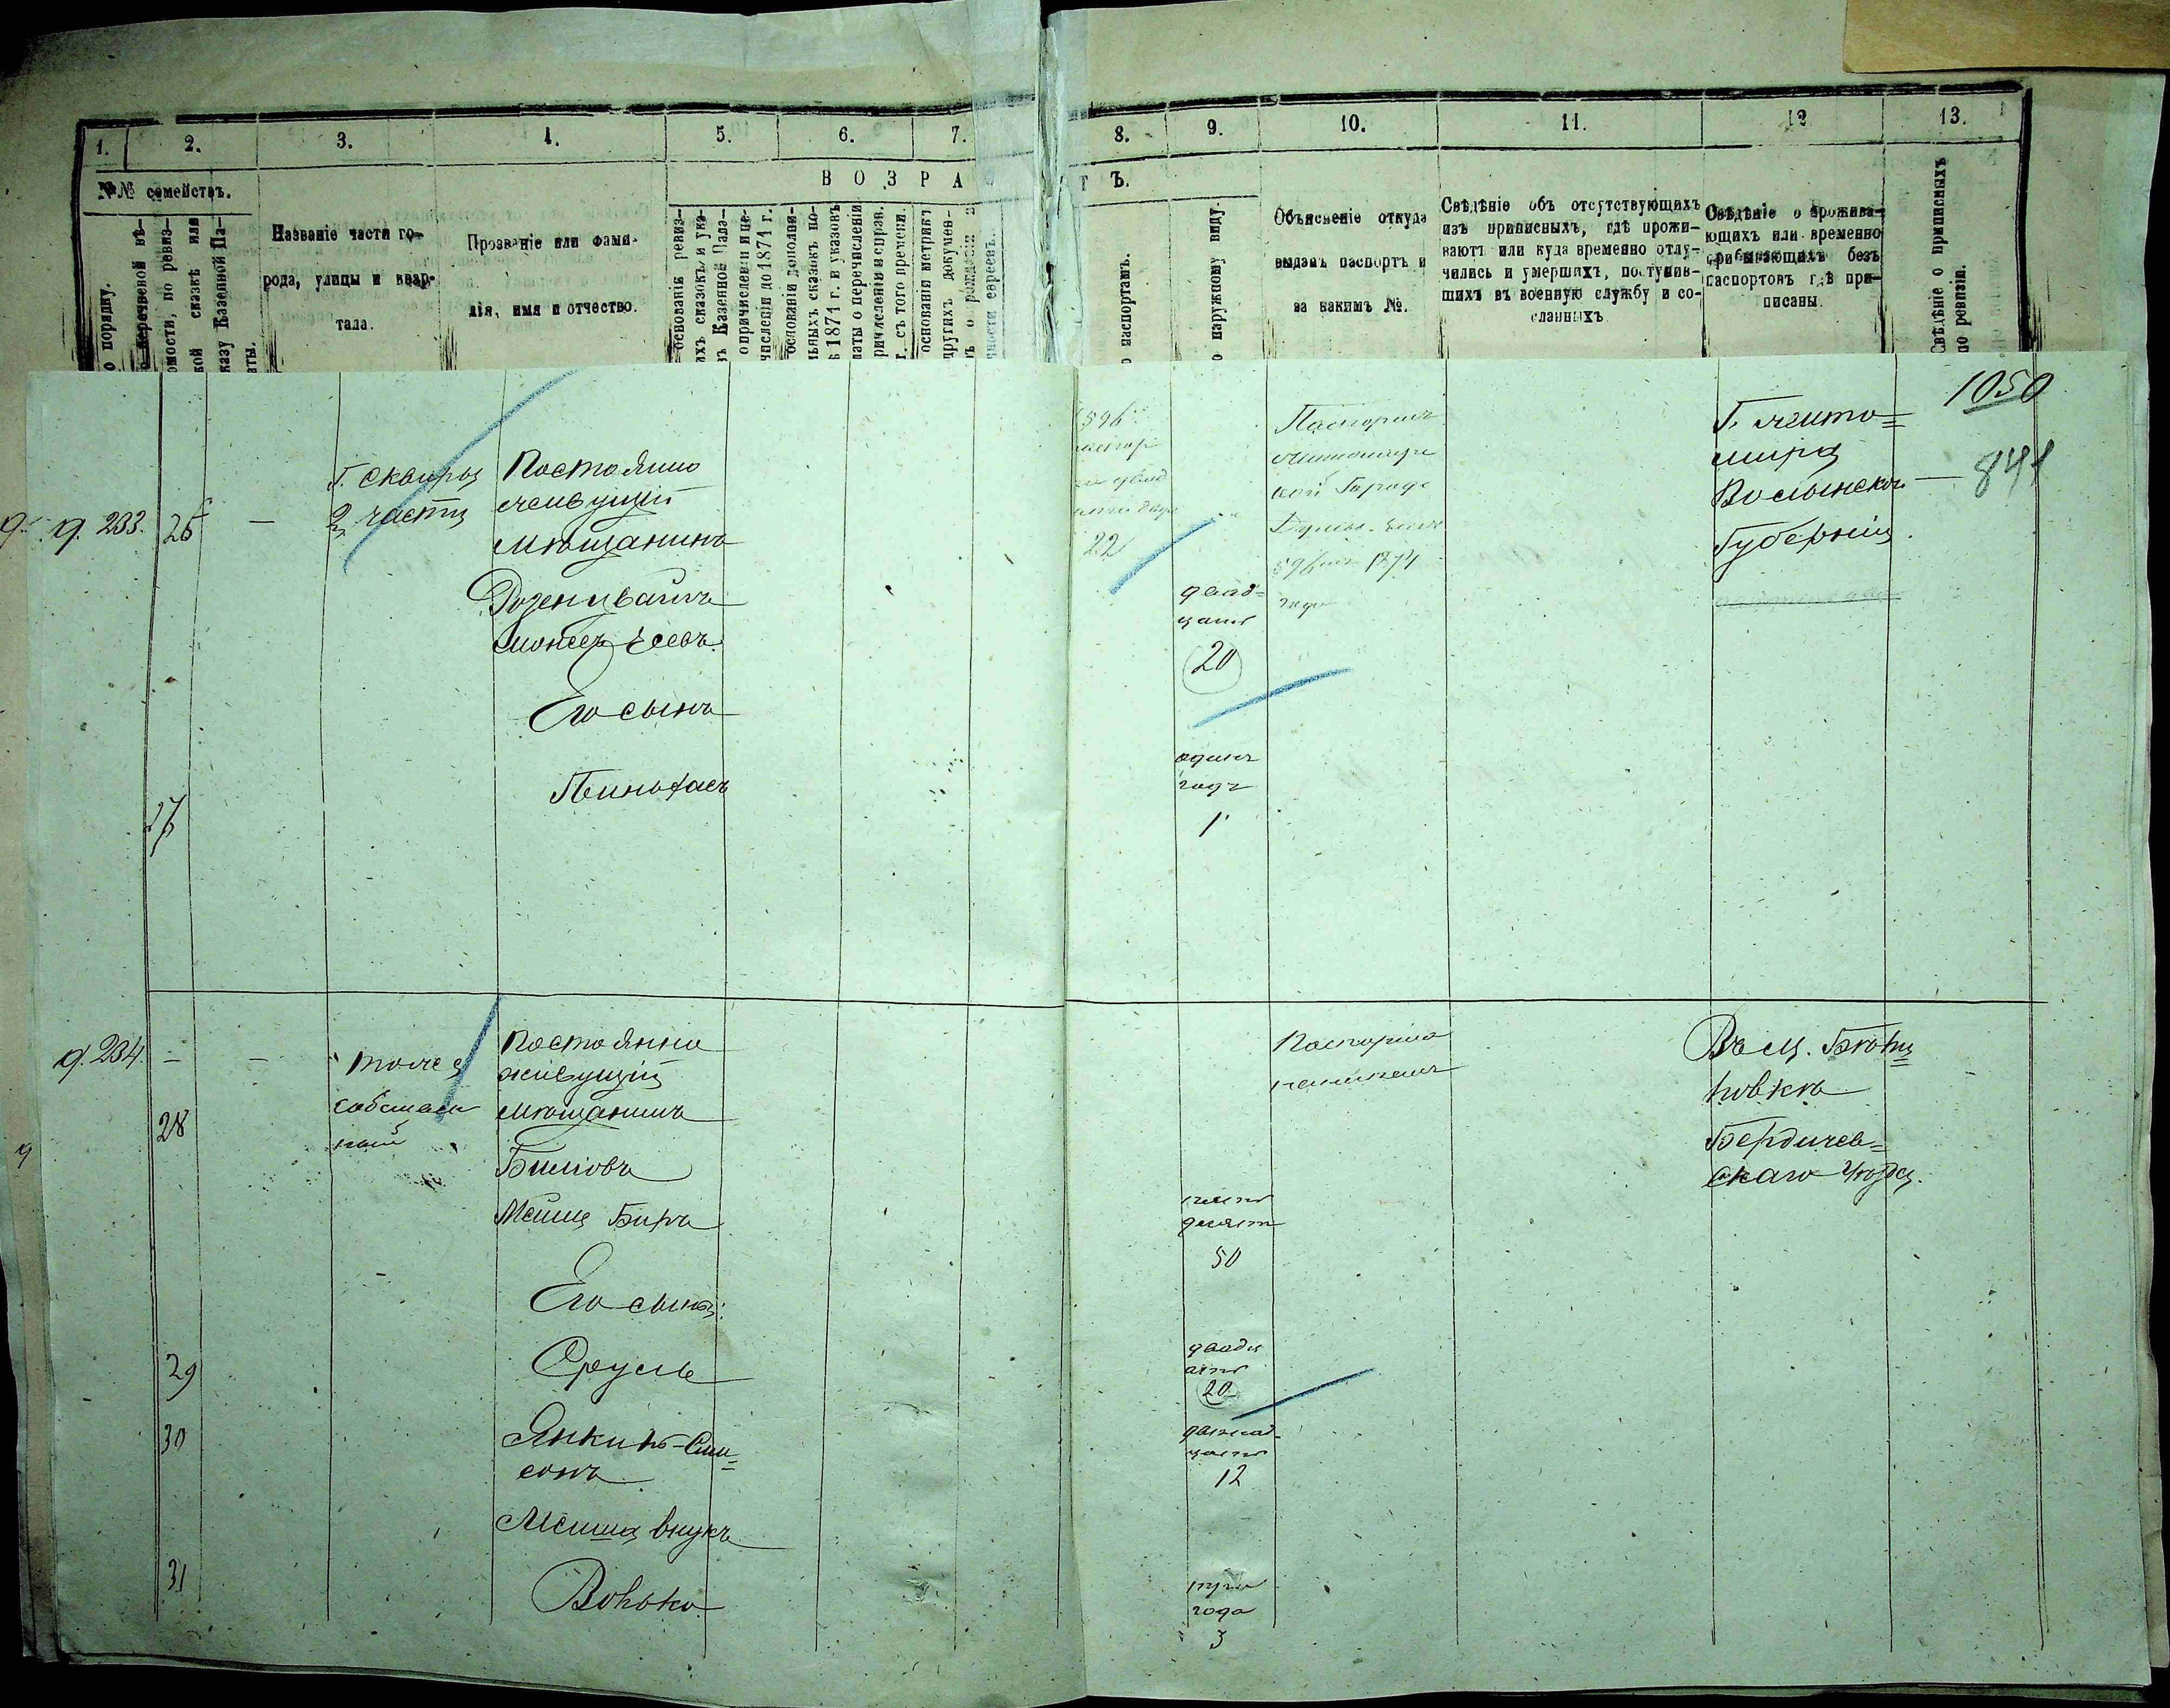 1. 2. 3. 4. 5. 6. 7. 8. 9. 10. 11. 12 13.
№№ семействъ.
В О З Р А С Т Ъ.
о порядку.
о перечневой вѣ-
омости, по ревиз-
кой сказкѣ или
казу Казенной Па-
аты.
Названіе части го-
рода, улицы и квар-
тала.
Прозваніе или фами-
лія, имя и отчество.
основаніи ревиз-
ихъ сказокъ и ука-
въ Казенной Пала-
о причисленіи и пе-
числеціи до 1871 г.
основаніи дополни-
льныхъ сказокъ по-
ѣ 1871 г. и указовъ
латы о перечисленіи
ричисленіи и справ.
г. съ того времени.
основаніи метрикъ
другихъ докумен-
ъ о рожденіи и
ности евреевъ.
о паспортамъ.
о наружному виду.
Объясненіе откуда
выданъ паспортъ и
за какимъ №.
Свѣдѣніе объ отсутствующихъ
изъ приписныхъ, гдѣ прожи-
ваютъ или куда временно отлу-
чились и умершихъ, поступив-
шихъ въ военную службу и со-
сланныхъ
Свѣдѣніе о прожива-
ющихъ или временно
пребывающихъ безъ
паспортовъ гдѣ при-
писаны.
Свѣдѣніе о приписныхъ
по ревизіи.
1050
841
9. 233. 26 —
Г. Сквиры
2 части
Постоянно
живущій
мѣщанинъ
Розенцвайгъ
Мойсей Іосевъ
Его сынъ
27
Пиньхасъ
596
22
двад=
цать
20
одинъ
годъ
1
Паспортъ
Житомирс
кой Городс
Думы
596 1874
года
Г. Жито=
мира
Волынской —
Губерніи
9. 234. — —
тоже
собствен
ной
28
Постоянно
живущій
мѣщанинъ
Мошко Беръ
пять
десят
50
Паспорта
Въ м.
Бердичев=
скаго Уѣзда.
Его сыны:
29
Сруль
двадц
ать
20
30
Янкиль-Сим=
сонъ
двѣнад-
цать
12
внукъ
31
Волько
три
года
3